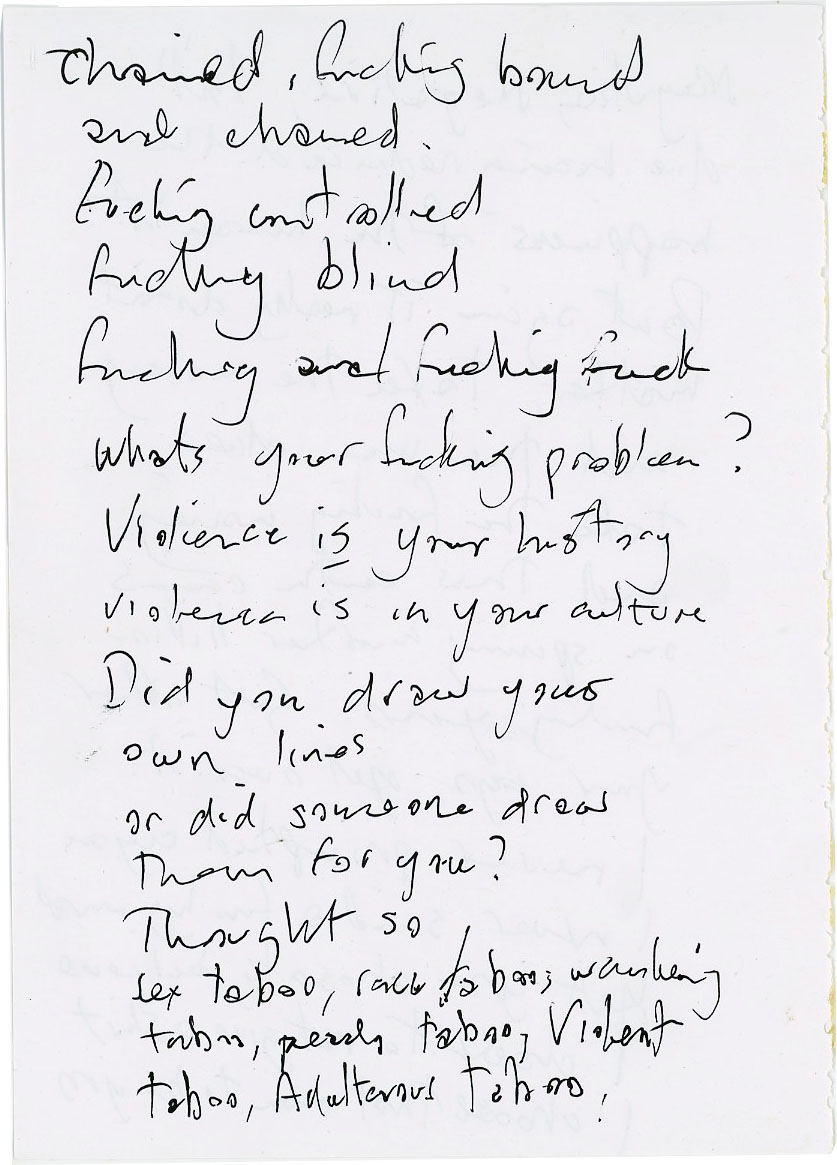 chained, fucking bound
and chained.
Fucking controlled
fucking blind
fucking and fucking fuck
whats your fucking problem?
Violence is your history
violence is in your culture
Did you draw your
own lines
or did someone draw
them for you?
Thought so,
sex taboo, race taboo, wanking
taboo, taboo, Violent
taboo, Adulterous taboo,